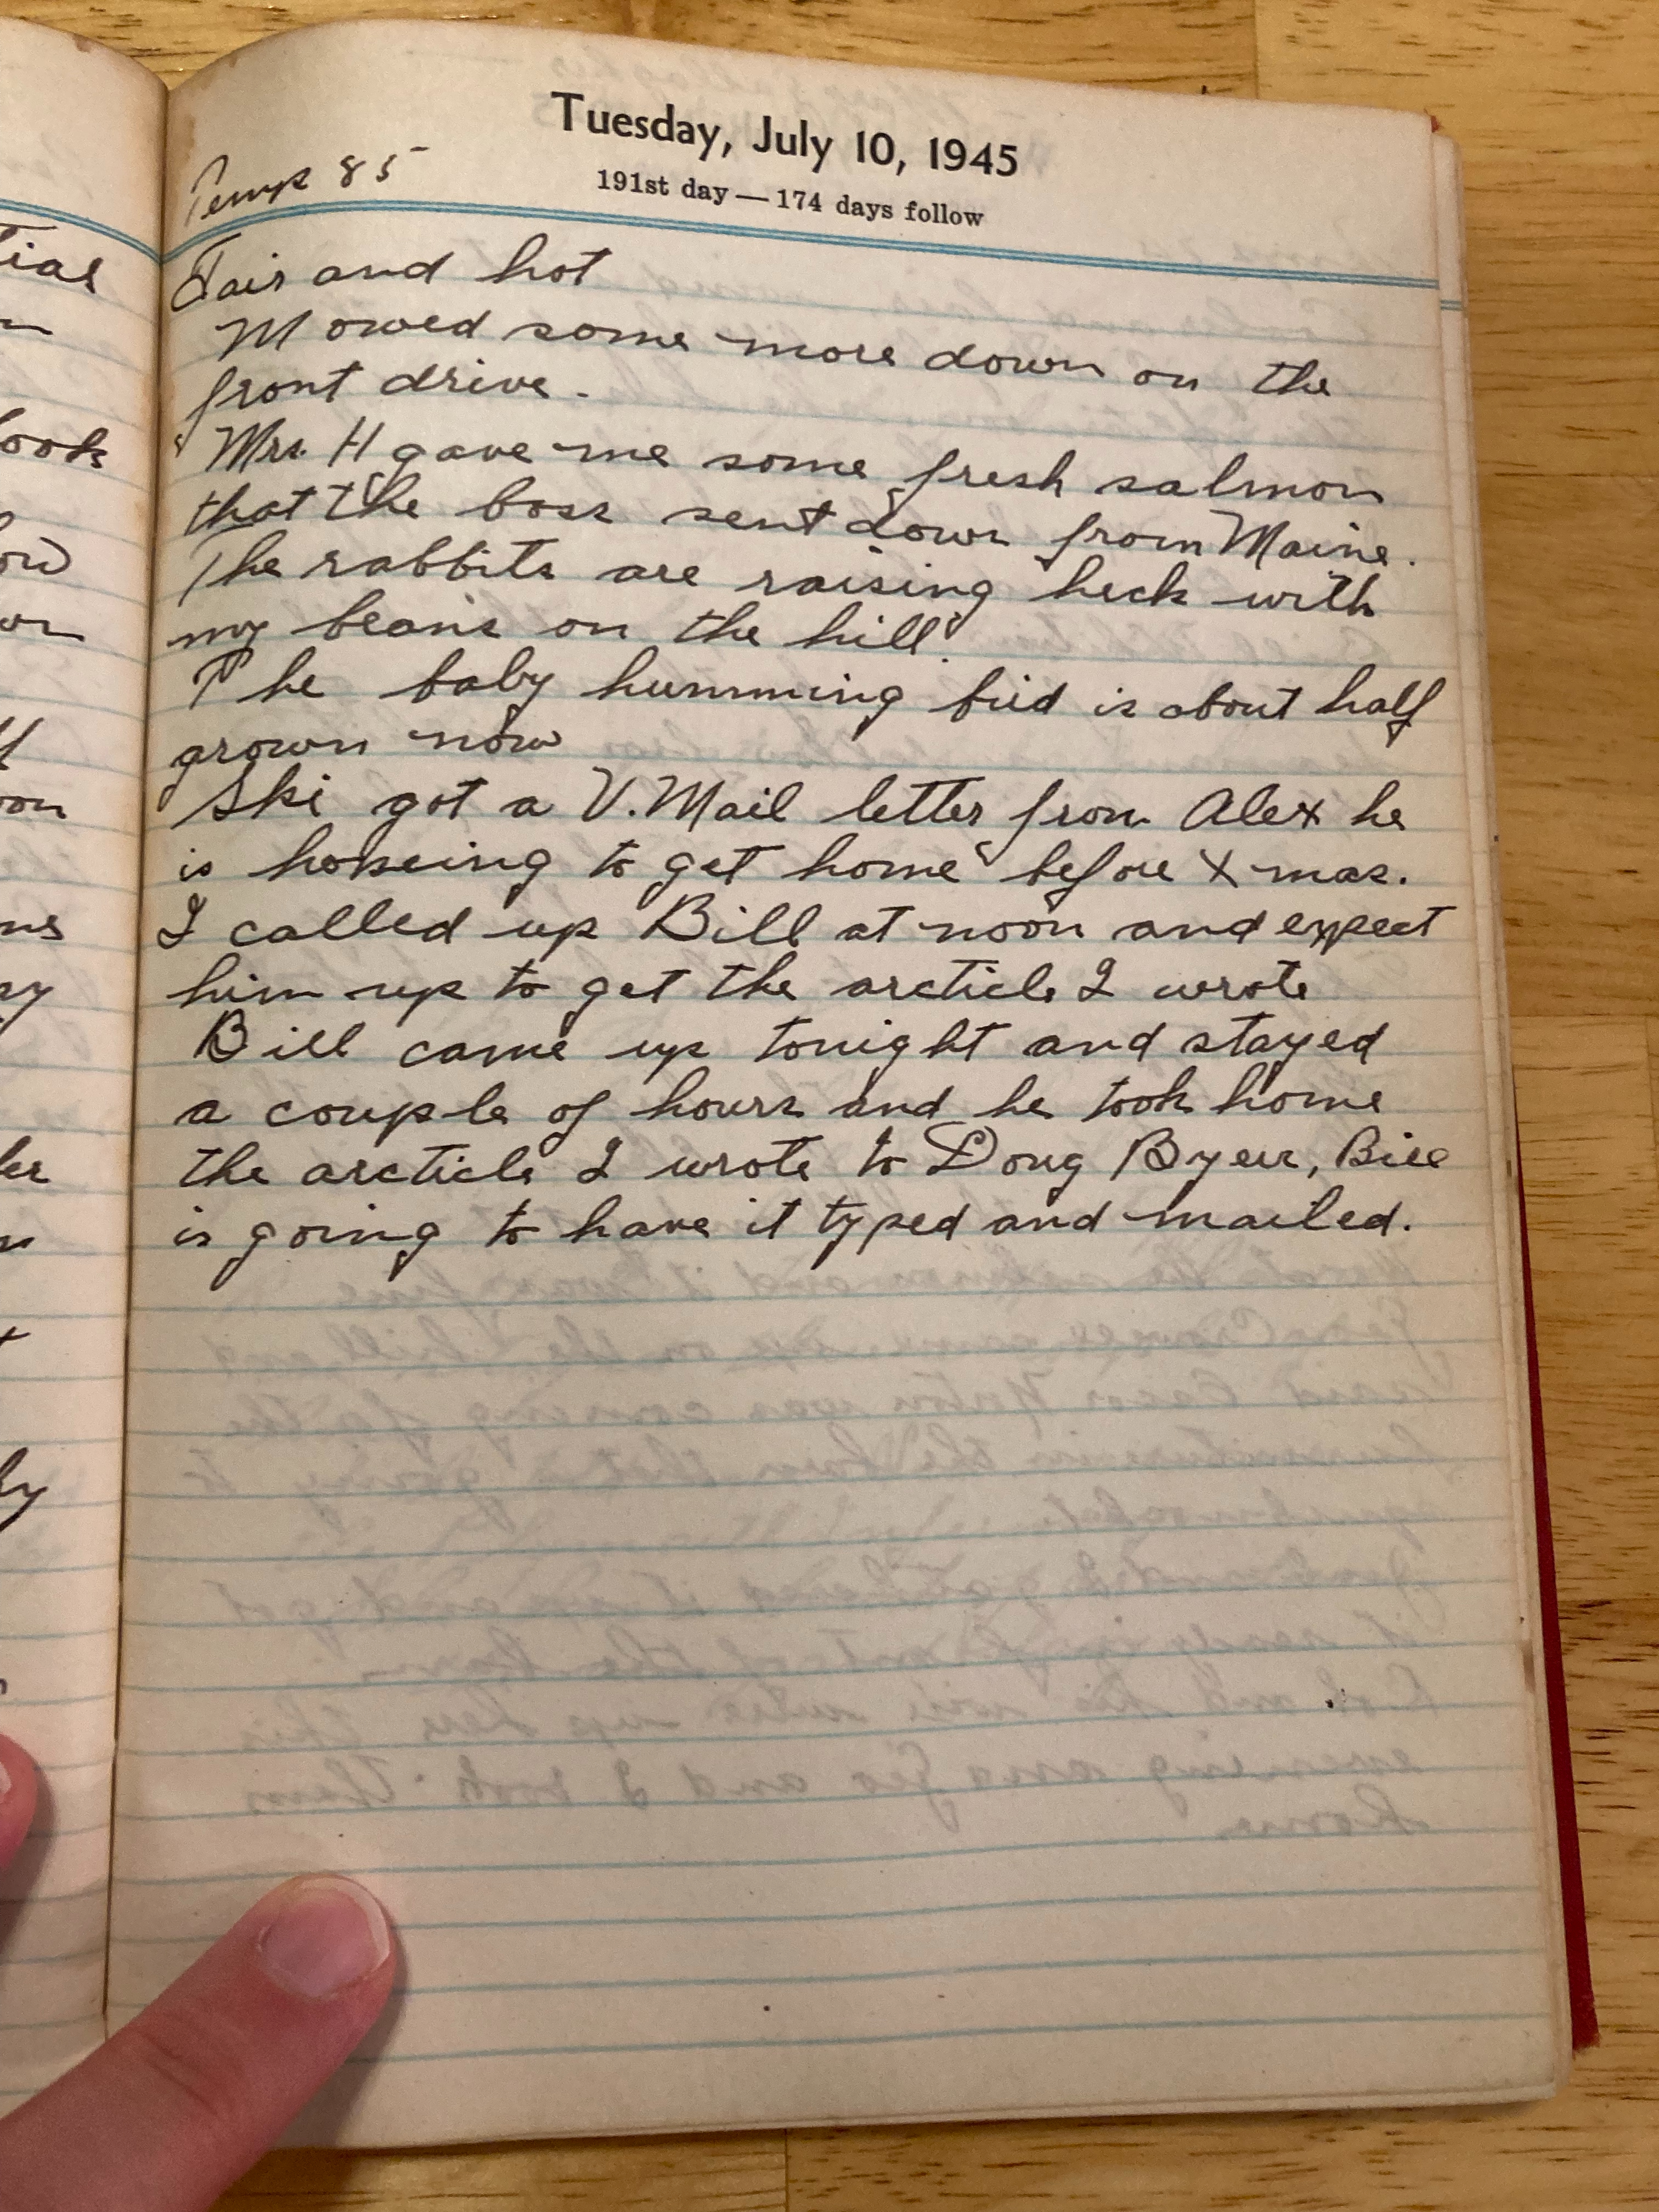 Tuesday, July 10, 1945
191st day — 174 days follow
Temp 85
Fair and hot
Mowed some more down on the
front drive.
Mrs. H gave me some fresh salmon
that the boss sent down from Maine.
The rabbits are raising heck with
my beans on the hill.
The baby humming bird is about half
grown now
Ski got a V. Mail letter from Alex he
is hopeing to get home before Xmas.
I called up Bill at noon and expect
him up to get the arcticle I wrote
Bill came up tonight and stayed
a couple of hours and he took home
the arcticle I wrote to Doug Byers, Bill
is going to have it typed and mailed.